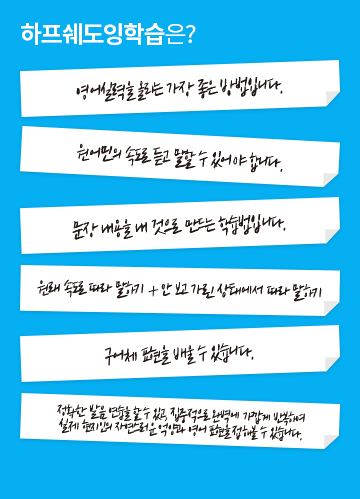 하프쉐도잉학습은?
영어실력을 올리는 가장 좋은 방법입니다.
원어민의 속도로 듣고 말할 수 있어야 합니다.
문장 내용을 내 것으로 만드는 학습법입니다.
원래 속도로 따라 말하기 + 안 보고 가린 상태에서 따라 말하기
구어체 표현을 배울 수 있습니다.
정확한 발음 연습을 할 수 있고, 집중적으로 완벽에 가깝게 반복하며
실제 현지인의 자연스러운 억양과 영어 표현을 접해볼 수 있습니다.